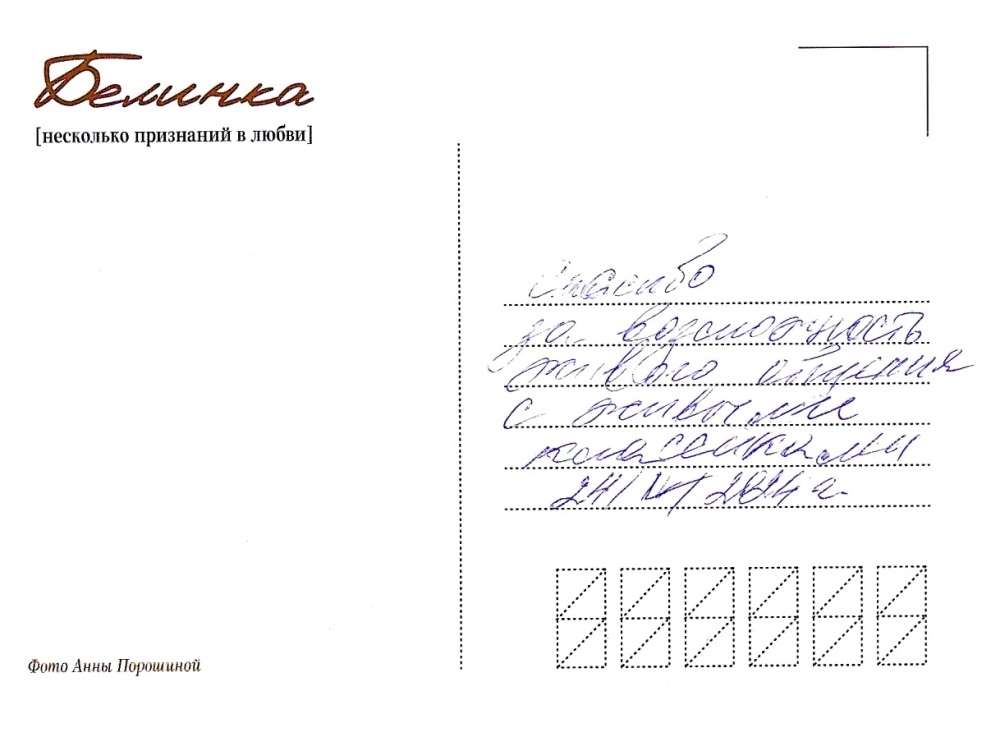 Белинка
[несколько признаний в любви]
Спасибо
за возможность
живого общения
с живыми
классиками
24/ 2024 г.
Фото Анны Порошиной